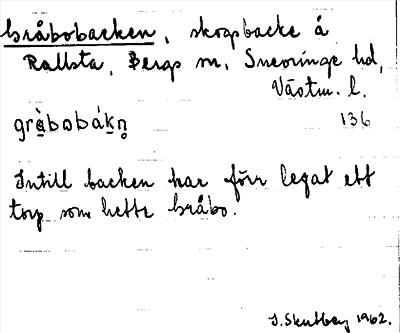 Gråbobacken, skogsbacke å
Rallsta, Bergs sn, Snevringe hd,
Västm. l.
gràbobákn̥ 136
Intill backen har förr legat ett
torp som hette Gråbo.
1962.